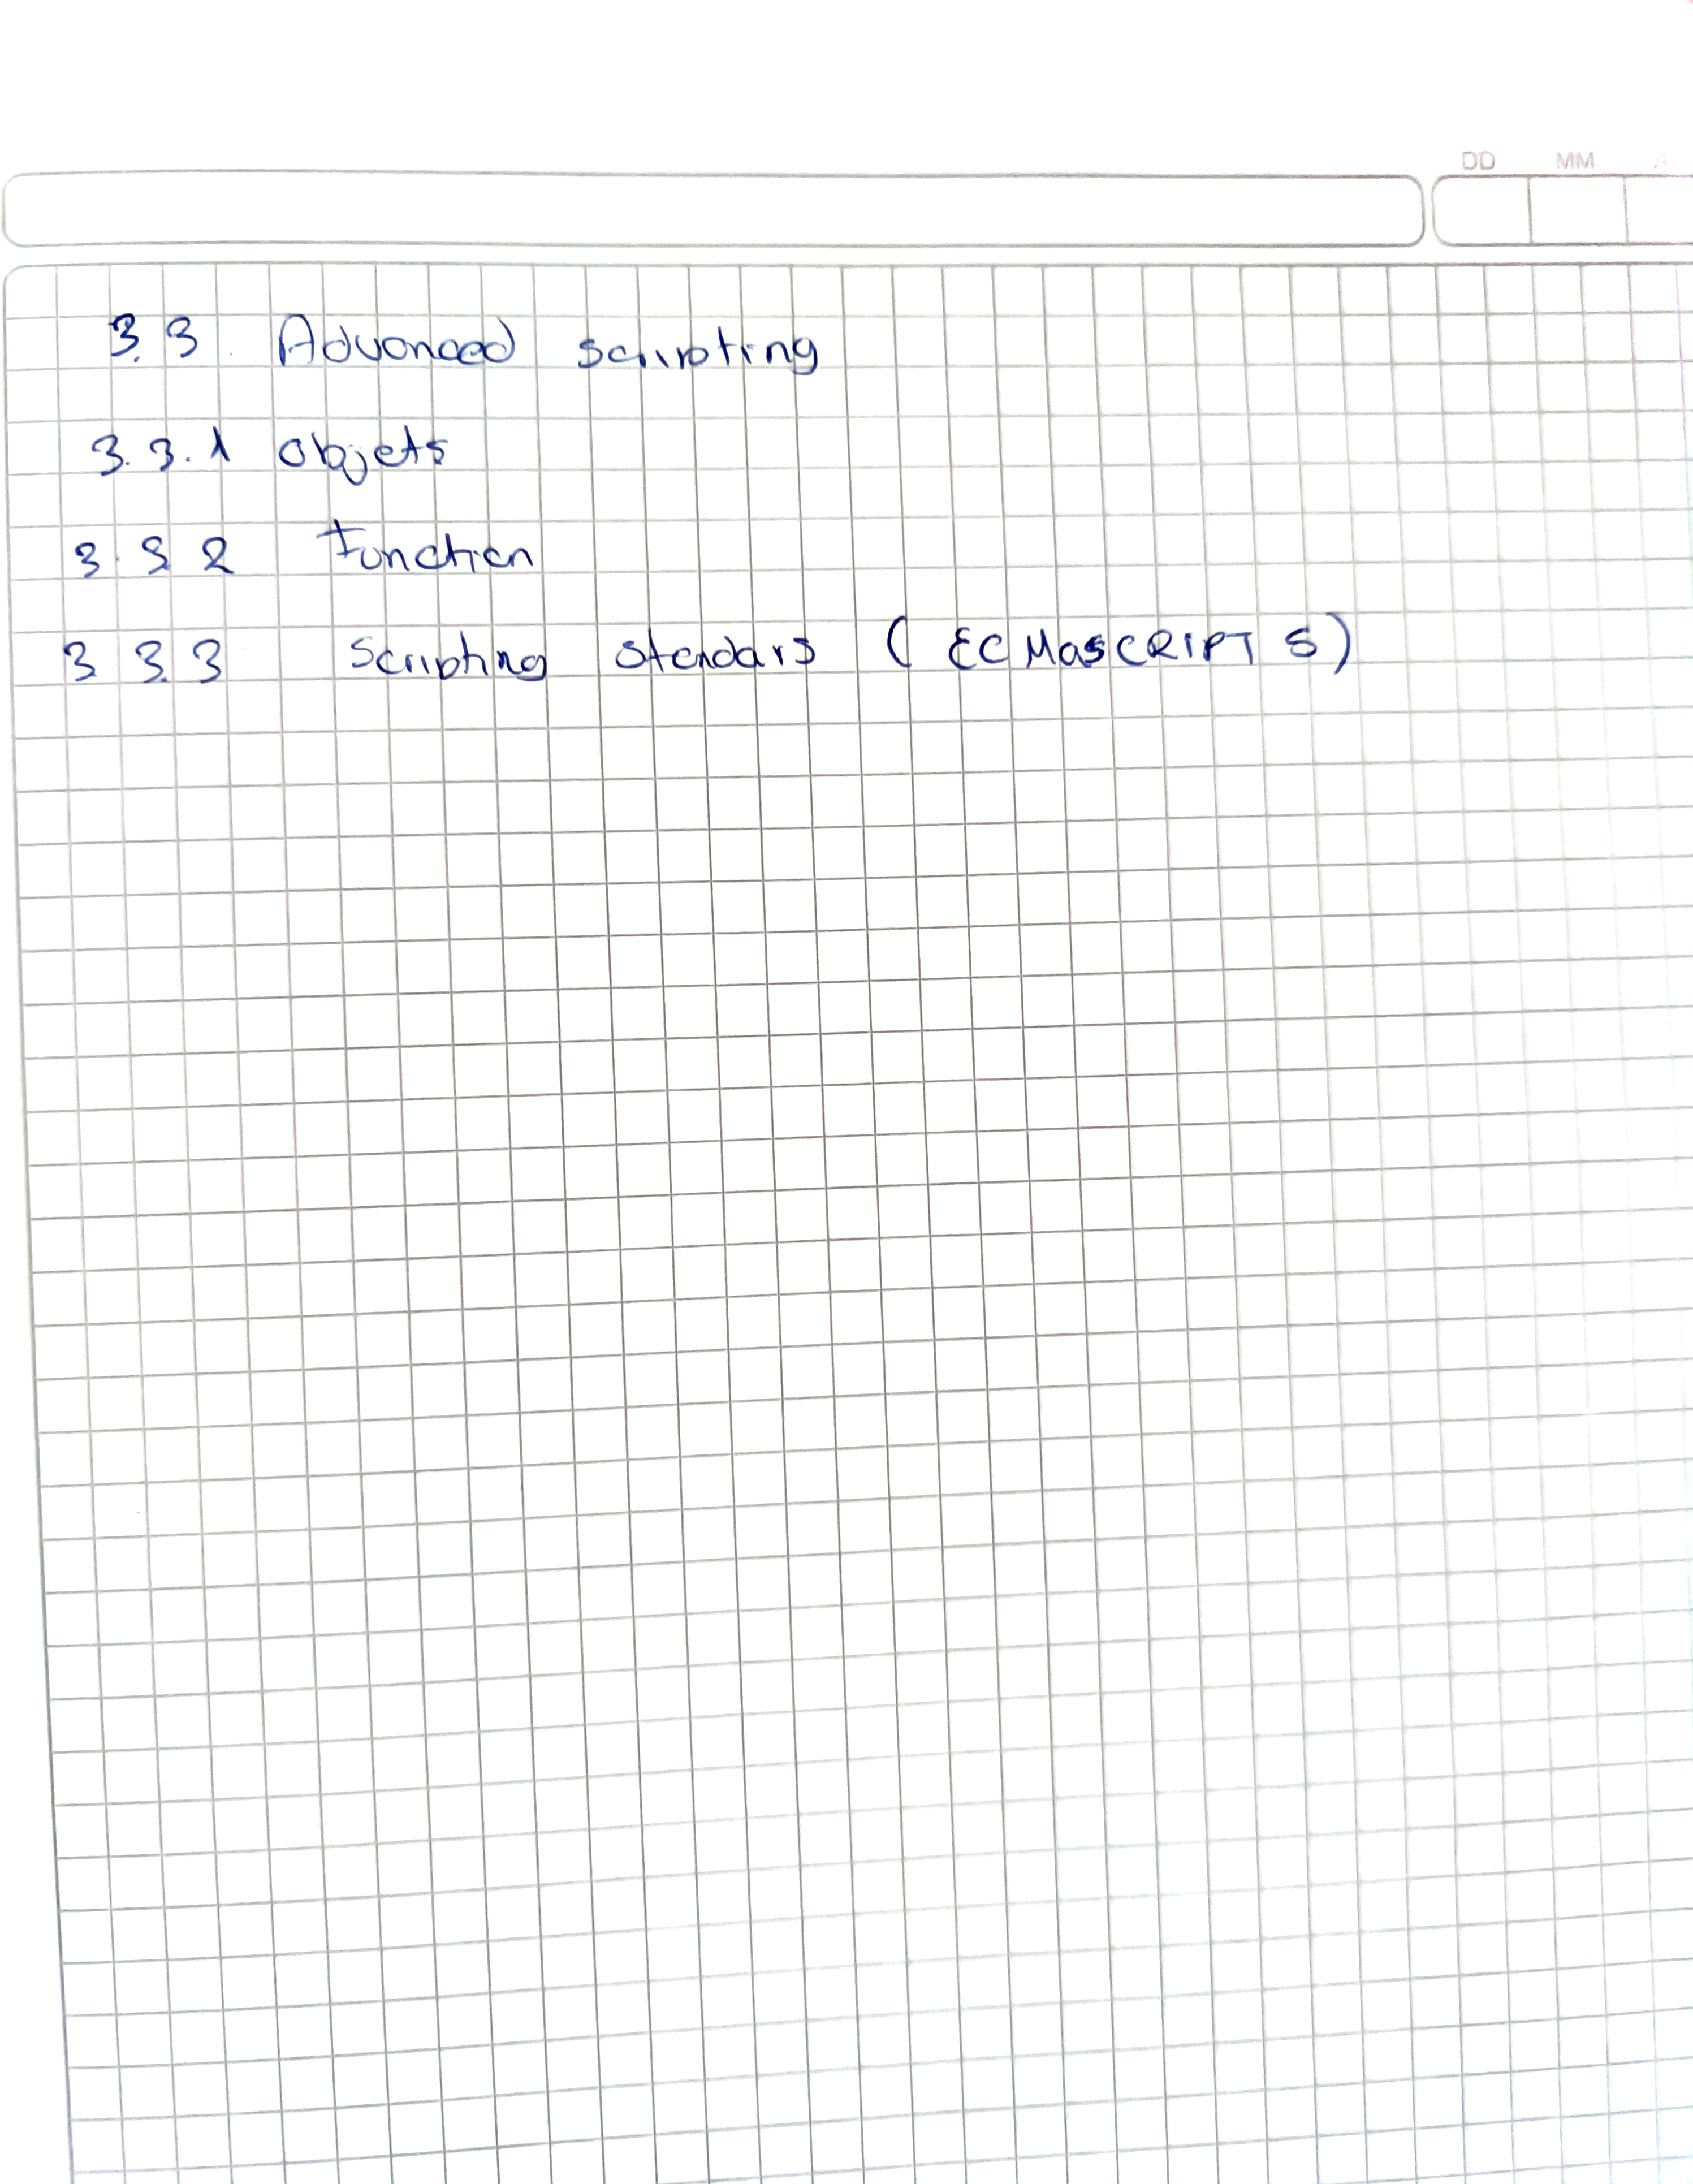 DD MM
3.3 Advanced scripting
3.3.1 objets
3.3.2 Function
3.3.3 Scripting standars (ECMASCRIPT 5)